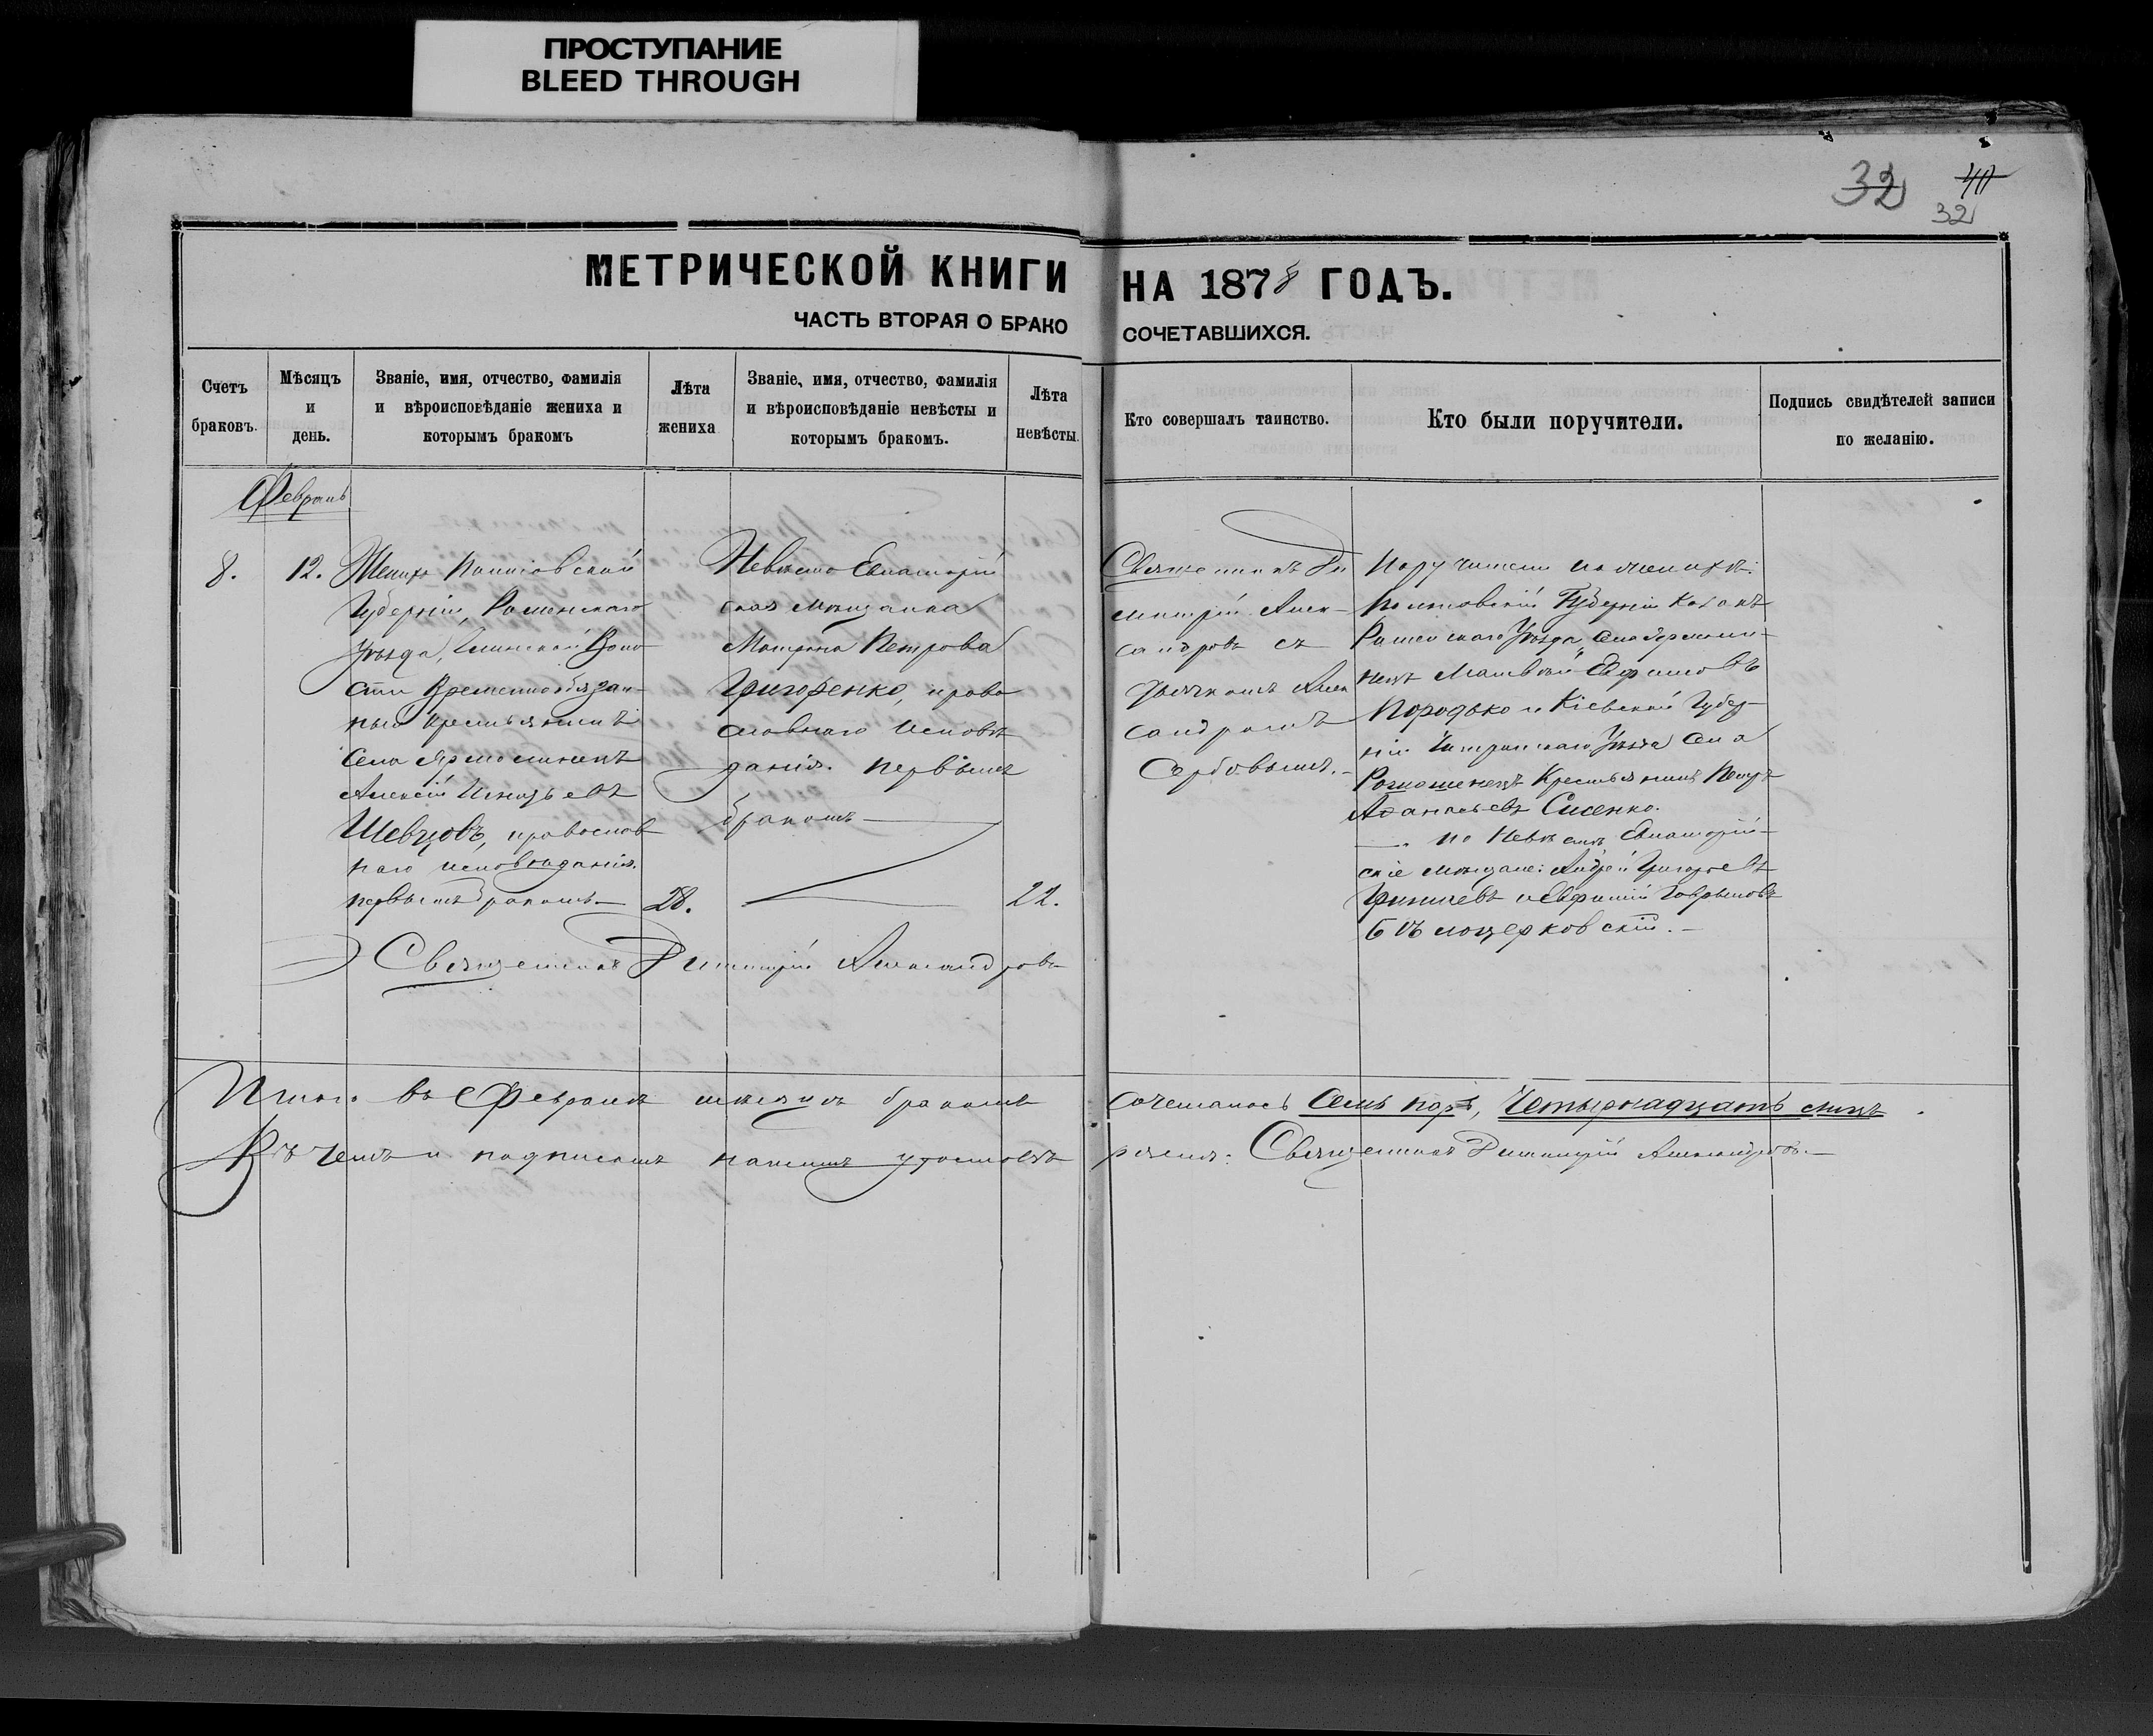 ПРОСТУПАНИЕ
BLEED THROUGH
32 40
32
МЕТРИЧЕСКОЙ КНИГИ НА 1878 ГОДЪ.
ЧАСТЬ ВТОРАЯ О БРАКОСОЧЕТАВШИХСЯ.
Счетъ браковъ.
Мѣсяцъ и день.
Званіе, имя, отчество, фамилія
и вѣроисповѣданіе жениха и
которымъ бракомъ
Лѣта жениха
Званіе, имя, отчество, фамилія
и вѣроисповѣданіе невѣсты и
которымъ бракомъ.
Лѣта невѣсты.
Кто совершалъ таинство.
Кто были поручители.
Подпись свидѣтелей записи
по желанію.
Февраль
8.
12.
Женихъ Полтовской
Губерніи, Роменскаго
Уѣзда, Воло
сти Временнообязан-
ный крестьянинъ
Села Ярмолинецъ
Алексій Игнатьевъ
Шевцовъ, православ
наго исповѣданія.
первымъ бракомъ.—
28.
Невѣста Евпаторій
ская мѣщанка
Матрона Петрова
Григоренко, право
славнаго исповѣ
данія. первымъ
бракомъ
22.
Священникъ Ди
митрій Алек-
сандровъ съ
дьячкомъ Алек
сандромъ
Сербовымъ.-
Поручители по женихѣ:
Полтовскій Губерніи козакъ
Роменскаго Уѣзда, Села Ярмоли-
нецъ Матвѣй Ефимовъ
Породько и Кіевской Губер-
ніи Уѣзда Села
Крестьянинъ Петръ
Афанасьевъ
по Невѣстѣ Евпаторій-
скіе мѣщане: Андрей Григорьевъ
и Ефимій
Бѣлоцерковскій.-
Священникъ Димитрій Александровъ
Итого въ Февралѣ мѣсяцѣ бракомъ сочеталось Семь паръ, Четырнадцать лицъ.
Въ чемъ и подписомъ нашимъ удостовѣряемъ: Священникъ Димитрій Александровъ.—